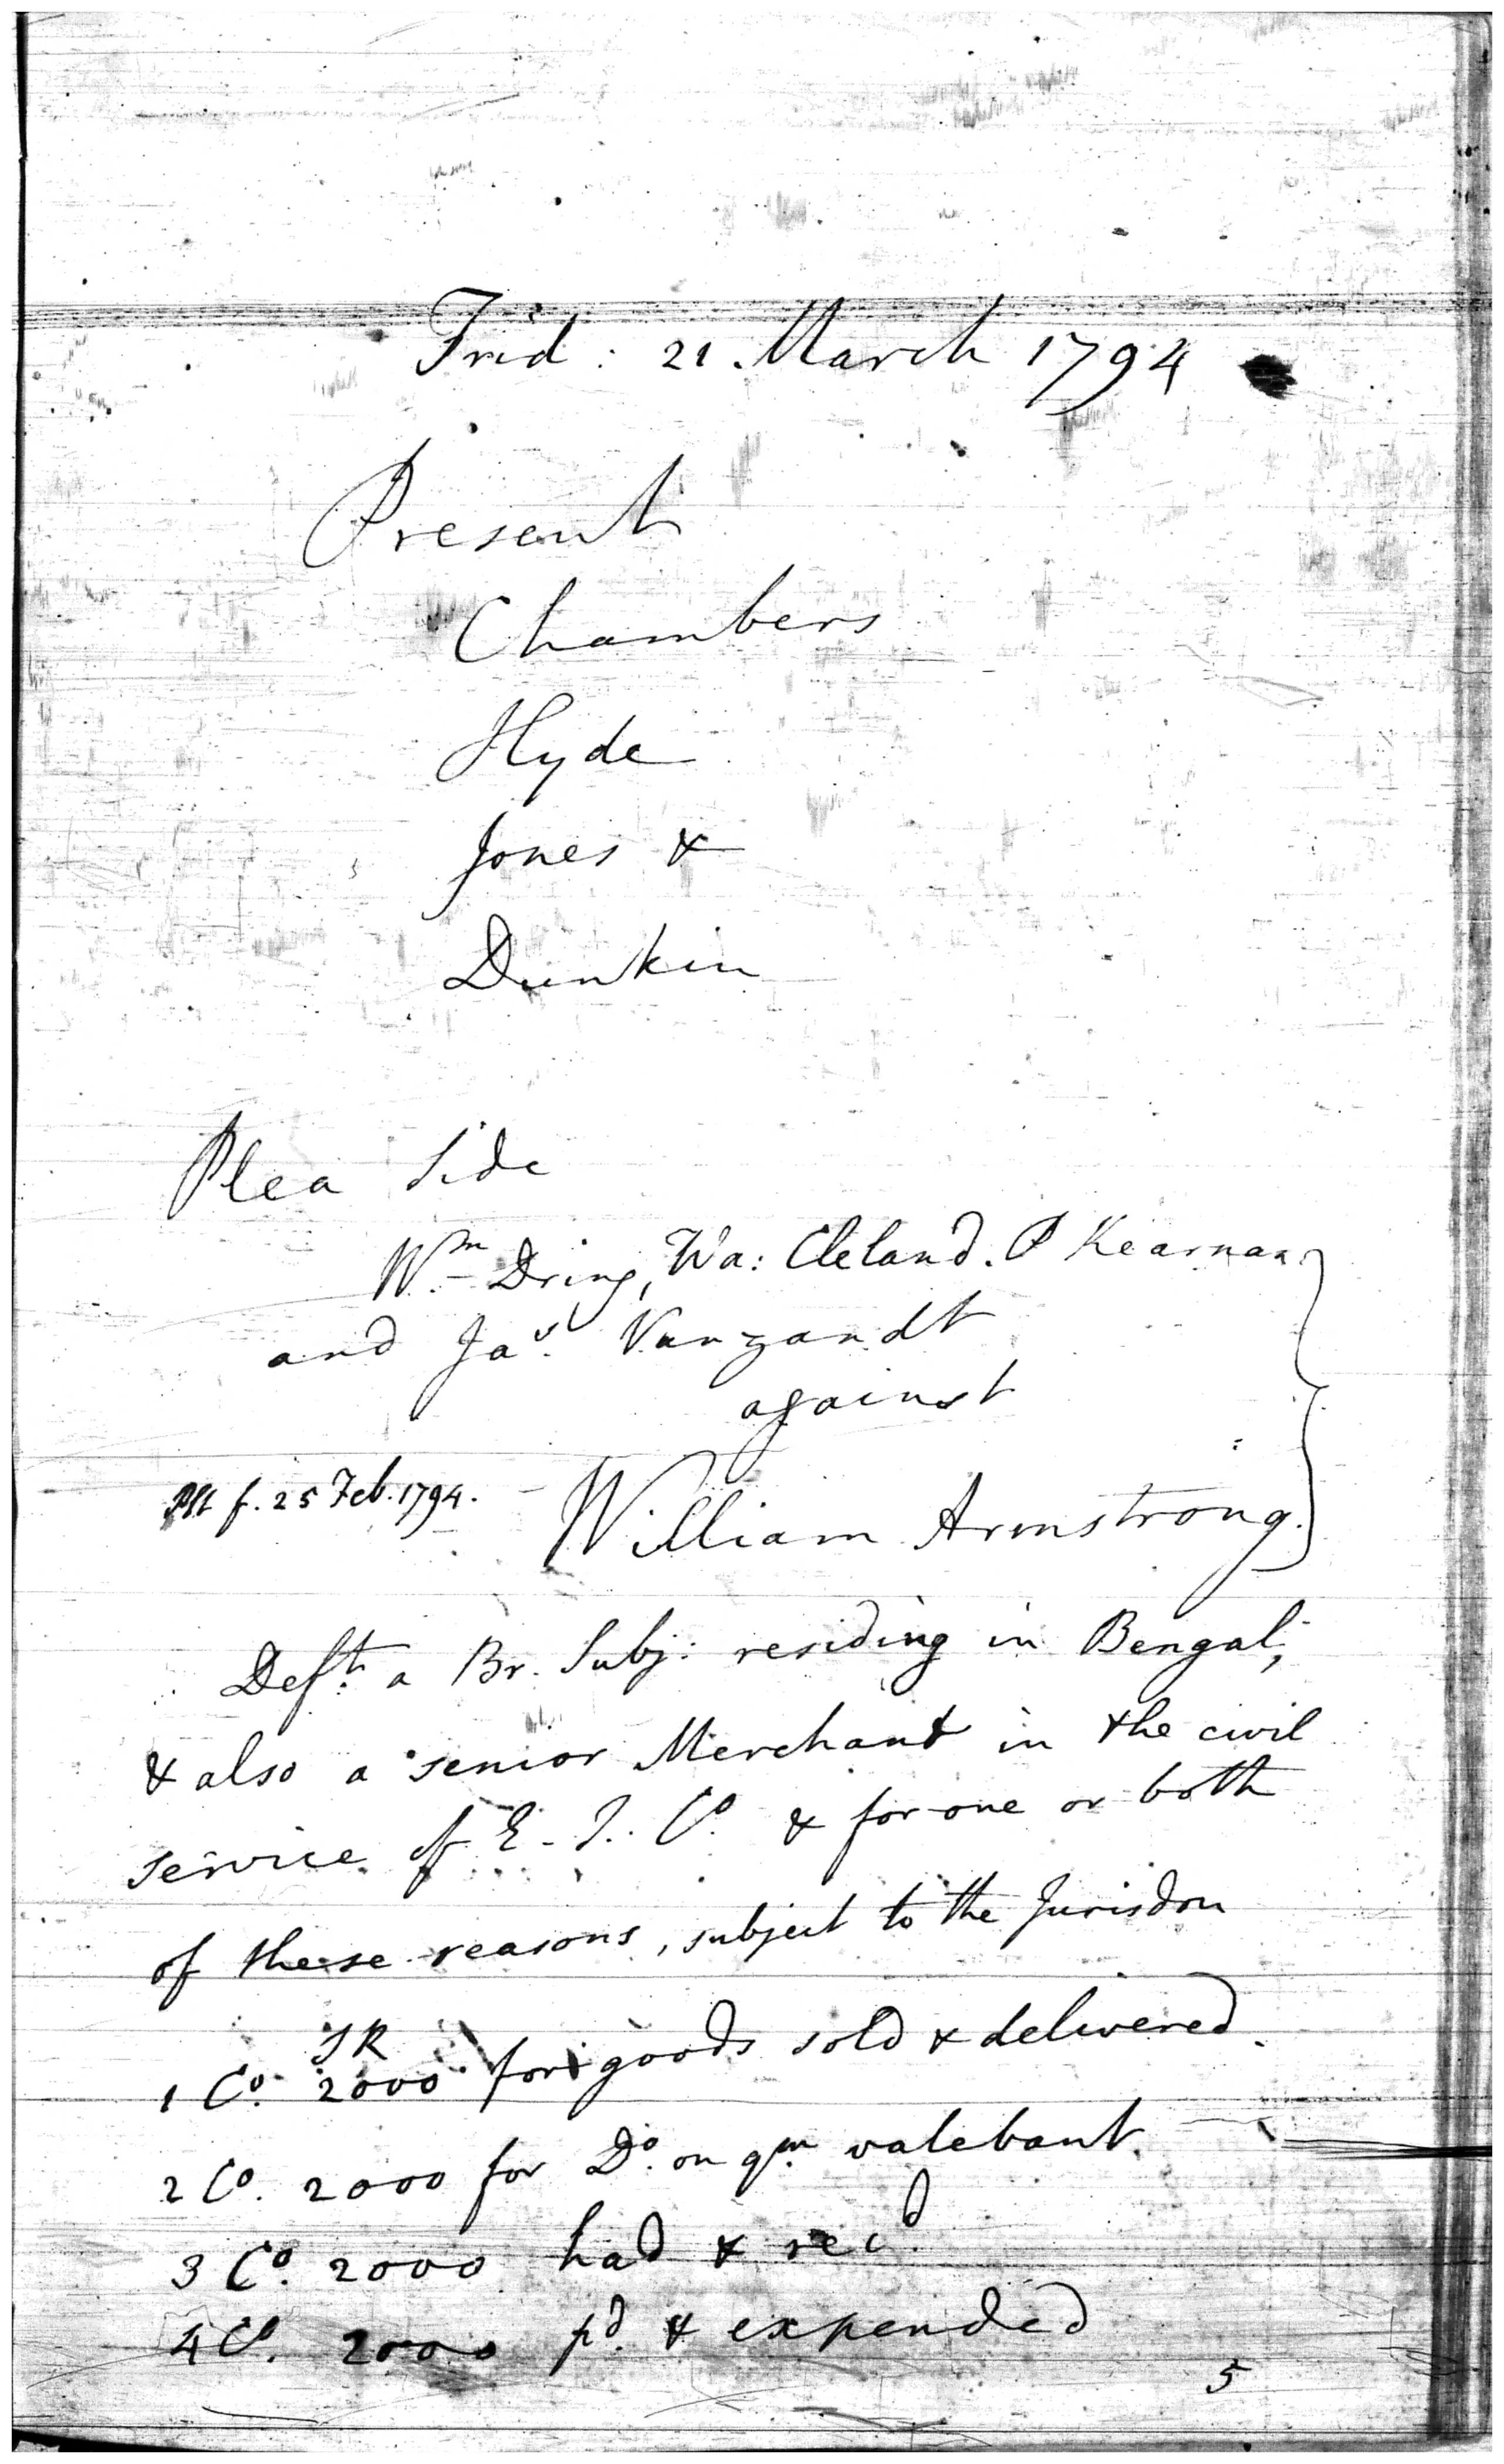 Frid: 21. March 1794
Present
Chambers
Hyde
Jones &
Dunkin
Plea Side
Wm Dring, Wa: Cleland. P Kearnan
and Jas. Vanzandt
against
Plt f. 25 Feb. 1794.
William Armstrong.
Deft. a Br. Subj: residing in Bengal;
& also a senior Merchant in the civil
service of E. I. Co. & for one or both
of these reasons, subject to the Jurisdon
SR
1 Co. 2000 for goods sold & delivered.
2 Co. 2000 for Do. on qm. valebant.
3 Co. 2000 had & recd.
4 Co. 2000 pd. & expended
5